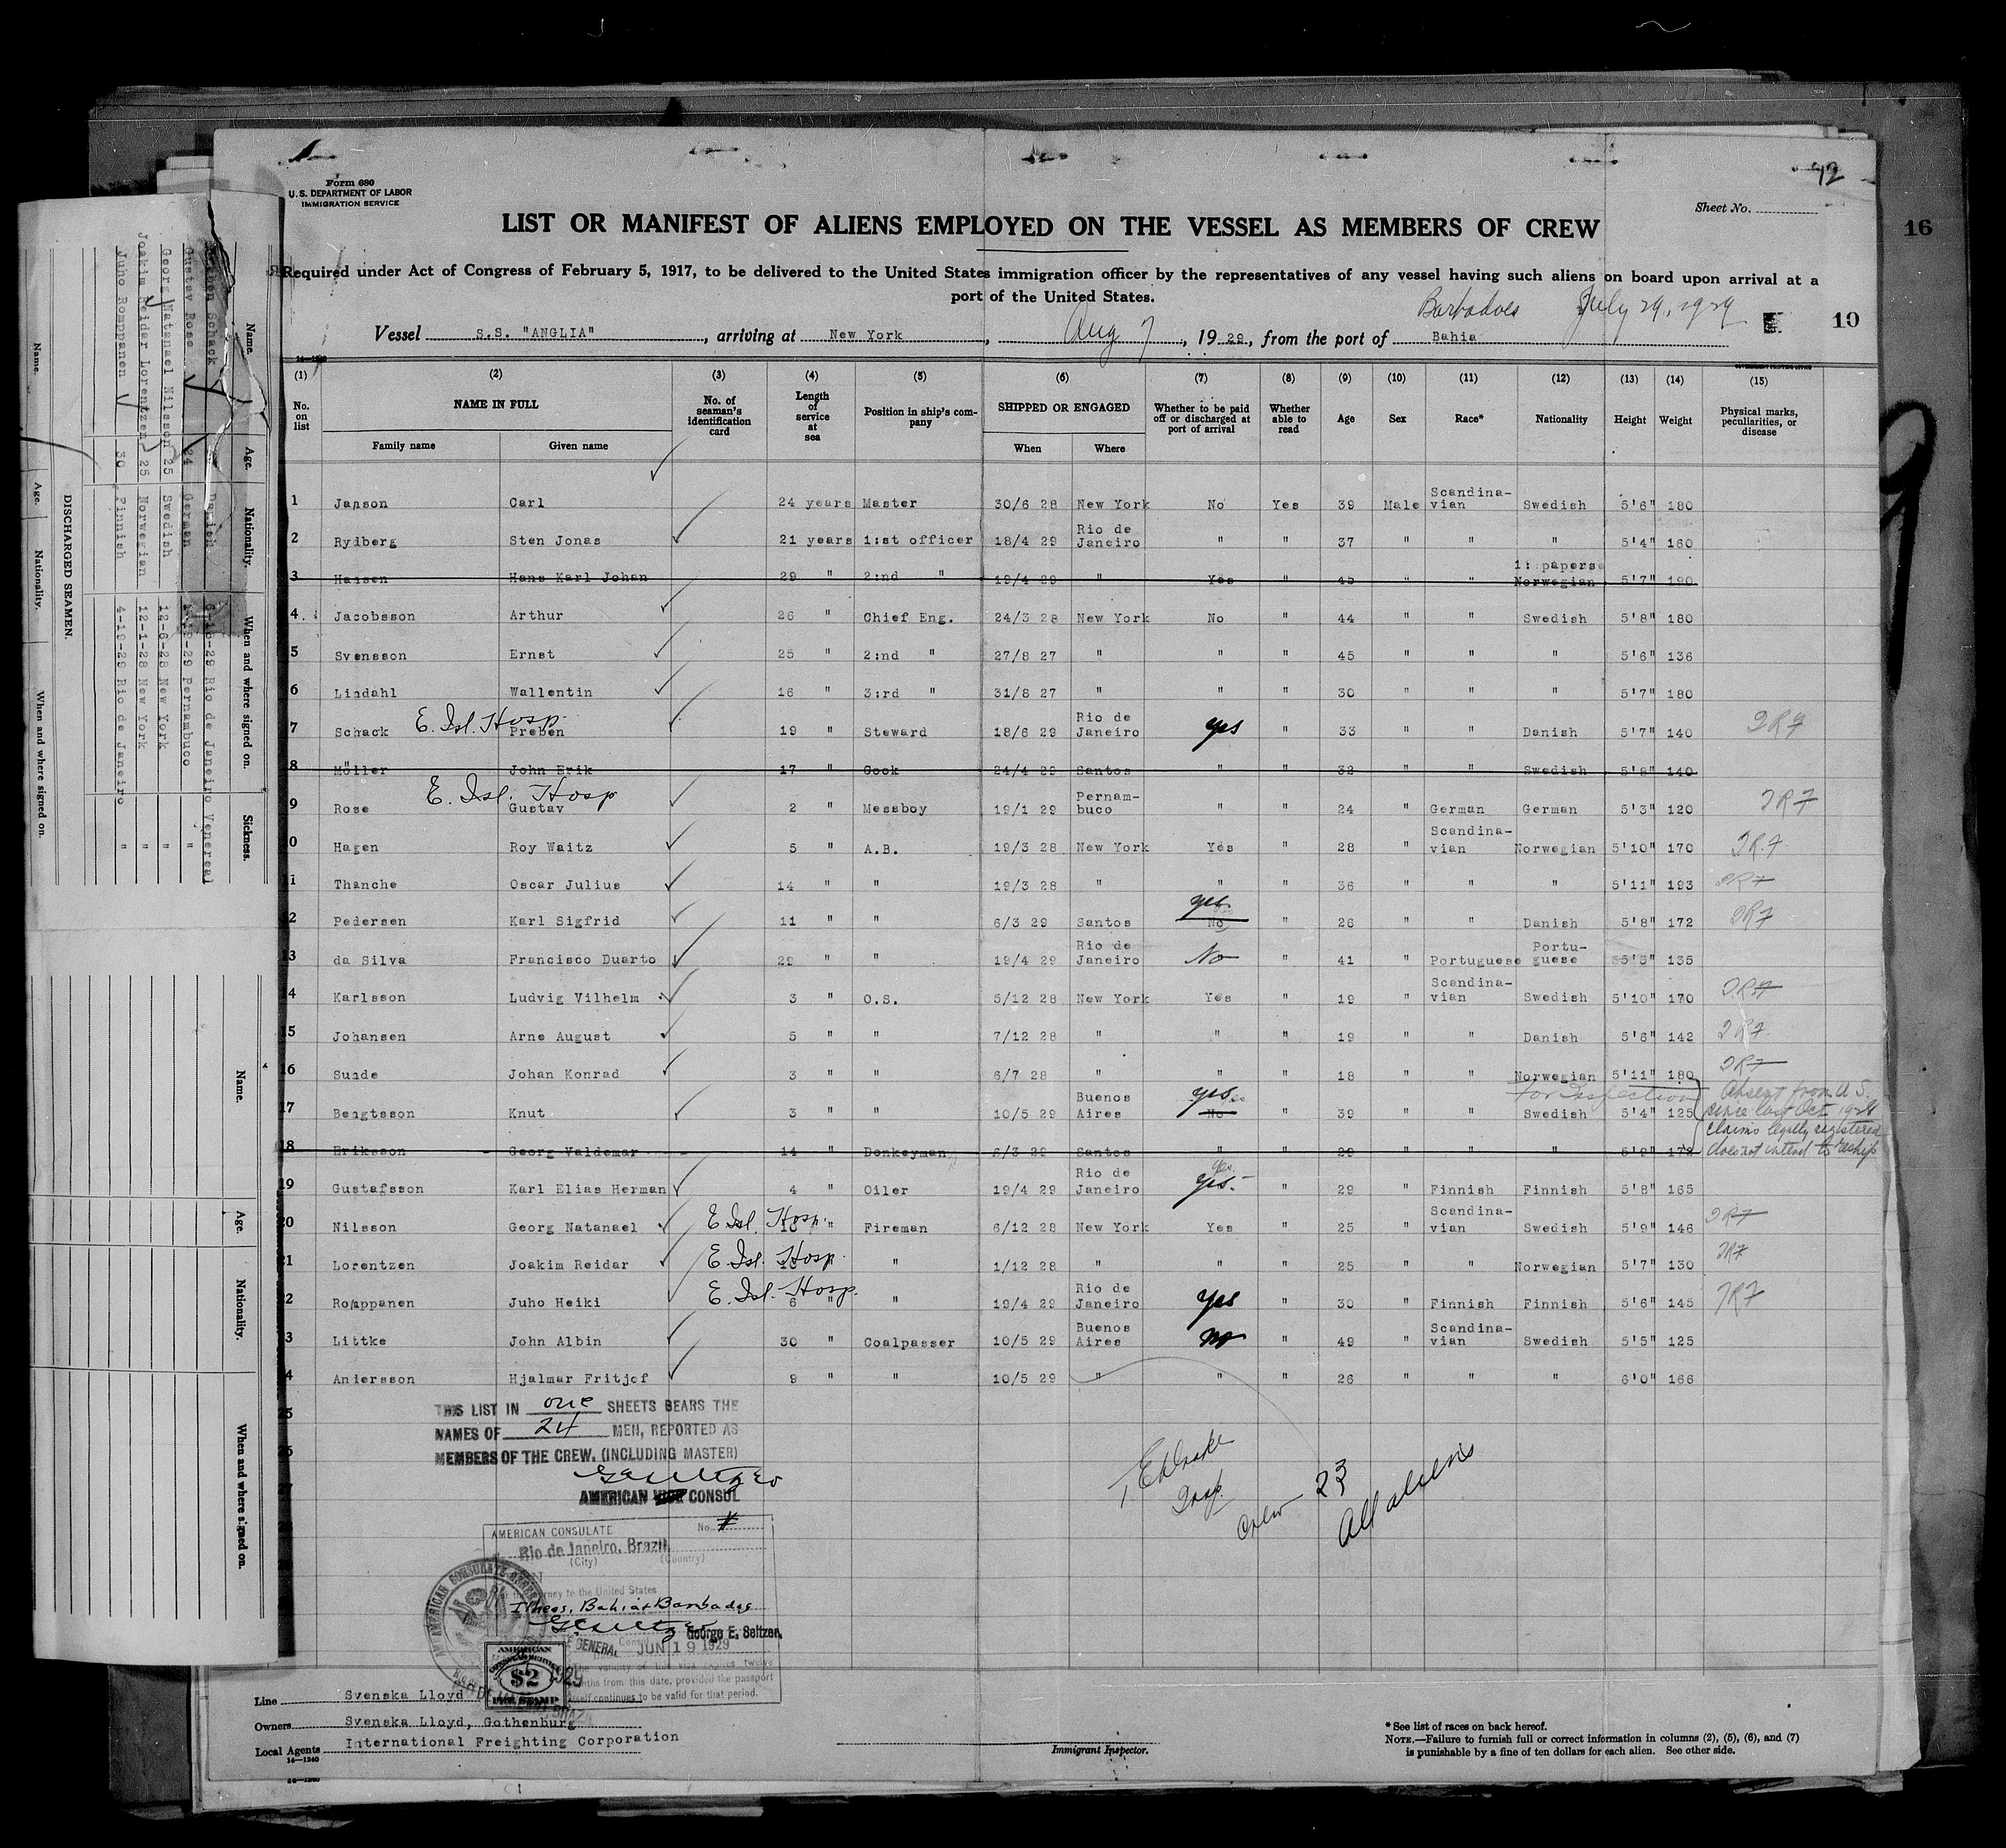 Form 680
U. S. DEPARTMENT OF LABOR
IMMIGRATION SERVICE
42
Sheet No.
16
LIST OR MANIFEST OF ALIENS EMPLOYED ON THE VESSEL AS MEMBERS OF CREW
Required under Act of Congress of February 5, 1917, to be delivered to the United States immigration officer by the representatives of any vessel having such aliens on board upon arrival at a
port of the United States.
Barbadoes July 29, 1929
Vessel S.S. "ANGLIA", arriving at New York, Aug 7, 1929, from the port of Bahia
10
(1) (2) (3) (4) (5) (6) (7) (8) (9) (10) (11) (12) (13) (14) (15)
No. on list NAME IN FULL No. of seaman's identification card Length of service at sea Position in ship's company SHIPPED OR ENGAGED Whether to be paid off or discharged at port of arrival Whether able to read Age Sex Race* Nationality Height Weight Physical marks, peculiarities, or disease
Family name Given name When Where
1 Janson Carl 24 years Master 30/6 28 New York No Yes 39 Male Scandina-vian Swedish 5'6" 180
2 Rydberg Sten Jonas 21 years 1:st officer 18/4 29 Rio de Janeiro " " 37 " " " 5'4" 160
3 Hansen Hans Karl Johan 29 " 2:nd " 19/4 29 " Yes " 45 " " 1: papers Norwegian 5'7" 180
4 Jacobsson Arthur 26 " Chief Eng. 24/3 28 New York No " 44 " " Swedish 5'8" 180
5 Svensson Ernst 25 " 2:nd " 27/8 27 " " " 45 " " " 5'6" 136
6 Lindahl Wallentin 16 " 3:rd " 31/8 27 " " " 30 " " " 5'7" 180
7 Schack E. Isl. Hosp. Preben 19 " Steward 18/6 29 Rio de Janeiro yes " 33 " " Danish 5'7" 140
8 Möller John Erik 17 " Cook 24/4 29 Santos " " 32 " " Swedish 5'8" 140
9 Rose E. Isl. Hosp Gustav 2 " Messboy 19/1 29 Pernam-buco " " 24 " German German 5'3" 120
10 Hagen Roy Waitz 5 " A.B. 19/3 28 New York Yes " 28 " Scandina-vian Norwegian 5'10" 170
11 Thanche Oscar Julius 14 " " 19/3 28 " " " 36 " " " 5'11" 193
12 Pedersen Karl Sigfrid 11 " " 6/3 29 Santos yes No " 26 " " Danish 5'8" 172
13 da Silva Francisco Duarto 29 " " 19/4 29 Rio de Janeiro No " 41 " Portuguese Portu-guese 5'3" 135
14 Karlsson Ludvig Vilhelm 3 " O.S. 5/12 28 New York Yes " 19 " Scandina-vian Swedish 5'10" 170
15 Johansen Arne August 5 " " 7/12 28 " " " 19 " " Danish 5'6" 142
16 Sunde Johan Konrad 3 " " 6/7 28 " " " 18 " " Norwegian 5'11" 180
17 Bengtsson Knut 3 " " 10/5 29 Buenos Aires yes No " 39 " " Swedish 5'4" 125
for Inspection
Absent from U.S.
since last Oct 1928
claims legally registered
does not intend to reship
18 Eriksson Georg Valdemar 14 " Donkeyman 6/3 29 Santos " " 29 " " " 5'9" 172
19 Gustafsson Karl Elias Herman 4 " Oiler 19/4 29 Rio de Janeiro yes. " 29 " Finnish Finnish 5'8" 165
20 Nilsson Georg Natanael E. Isl. Hosp. 10 " Fireman 6/12 28 New York Yes " 25 " Scandina-vian Swedish 5'9" 146
21 Lorentzen Joakim Reidar E. Isl. Hosp. " " 1/12 28 " " " 25 " " Norwegian 5'7" 130
22 Romppanen Juho Heiki E. Isl. Hosp. 6 " " 19/4 29 Rio de Janeiro yes " 30 " Finnish Finnish 5'6" 145
23 Littke John Albin 30 " Coalpasser 10/5 29 Buenos Aires no " 49 " Scandina-vian Swedish 5'5" 125
24 Andersson Hjalmar Fritjof 9 " " 10/5 29 " " " 26 " " " 6'0" 166
THIS LIST IN one SHEETS BEARS THE
NAMES OF 24 MEN, REPORTED AS
MEMBERS OF THE CREW. (INCLUDING MASTER)
AMERICAN VICE CONSUL
Insp.
Crew 23
All aliens
AMERICAN CONSULATE No.
Rio de Janeiro, Brazil
(City) (Country)
journey to the United States
Ilheos, Bahia & Barbados
George E. Seltzer,
JUN 19 1929
The validity of this visa expires twelve
months from this date, provided the passport
itself continues to be valid for that period.
AMERICAN
CONSULAR SERVICE
$2
FEE STAMP
Line Svenska Lloyd
Owners Svenska Lloyd, Gothenburg
Local Agents International Freighting Corporation
14—1240
Immigrant Inspector.
* See list of races on back hereof.
NOTE.—Failure to furnish full or correct information in columns (2), (5), (6), and (7)
is punishable by a fine of ten dollars for each alien. See other side.
DISCHARGED SEAMEN.
Name. Age. Nationality. When and where signed on. Sickness.
Preben Schack Danish 6-18-29 Rio de Janeiro Venereal
Gustav Rose 24 German 1-19-29 Pernambuco "
Georg Natanael Nilsson 25 Swedish 12-6-28 New York "
Joakim Reidar Lorentzen 25 Norwegian 12-1-28 New York "
Juho Romppanen 30 Finnish 4-19-29 Rio de Janeiro "
Name. Age. Nationality. When and where signed on.
Name. Age. Nationality. When and where signed on.